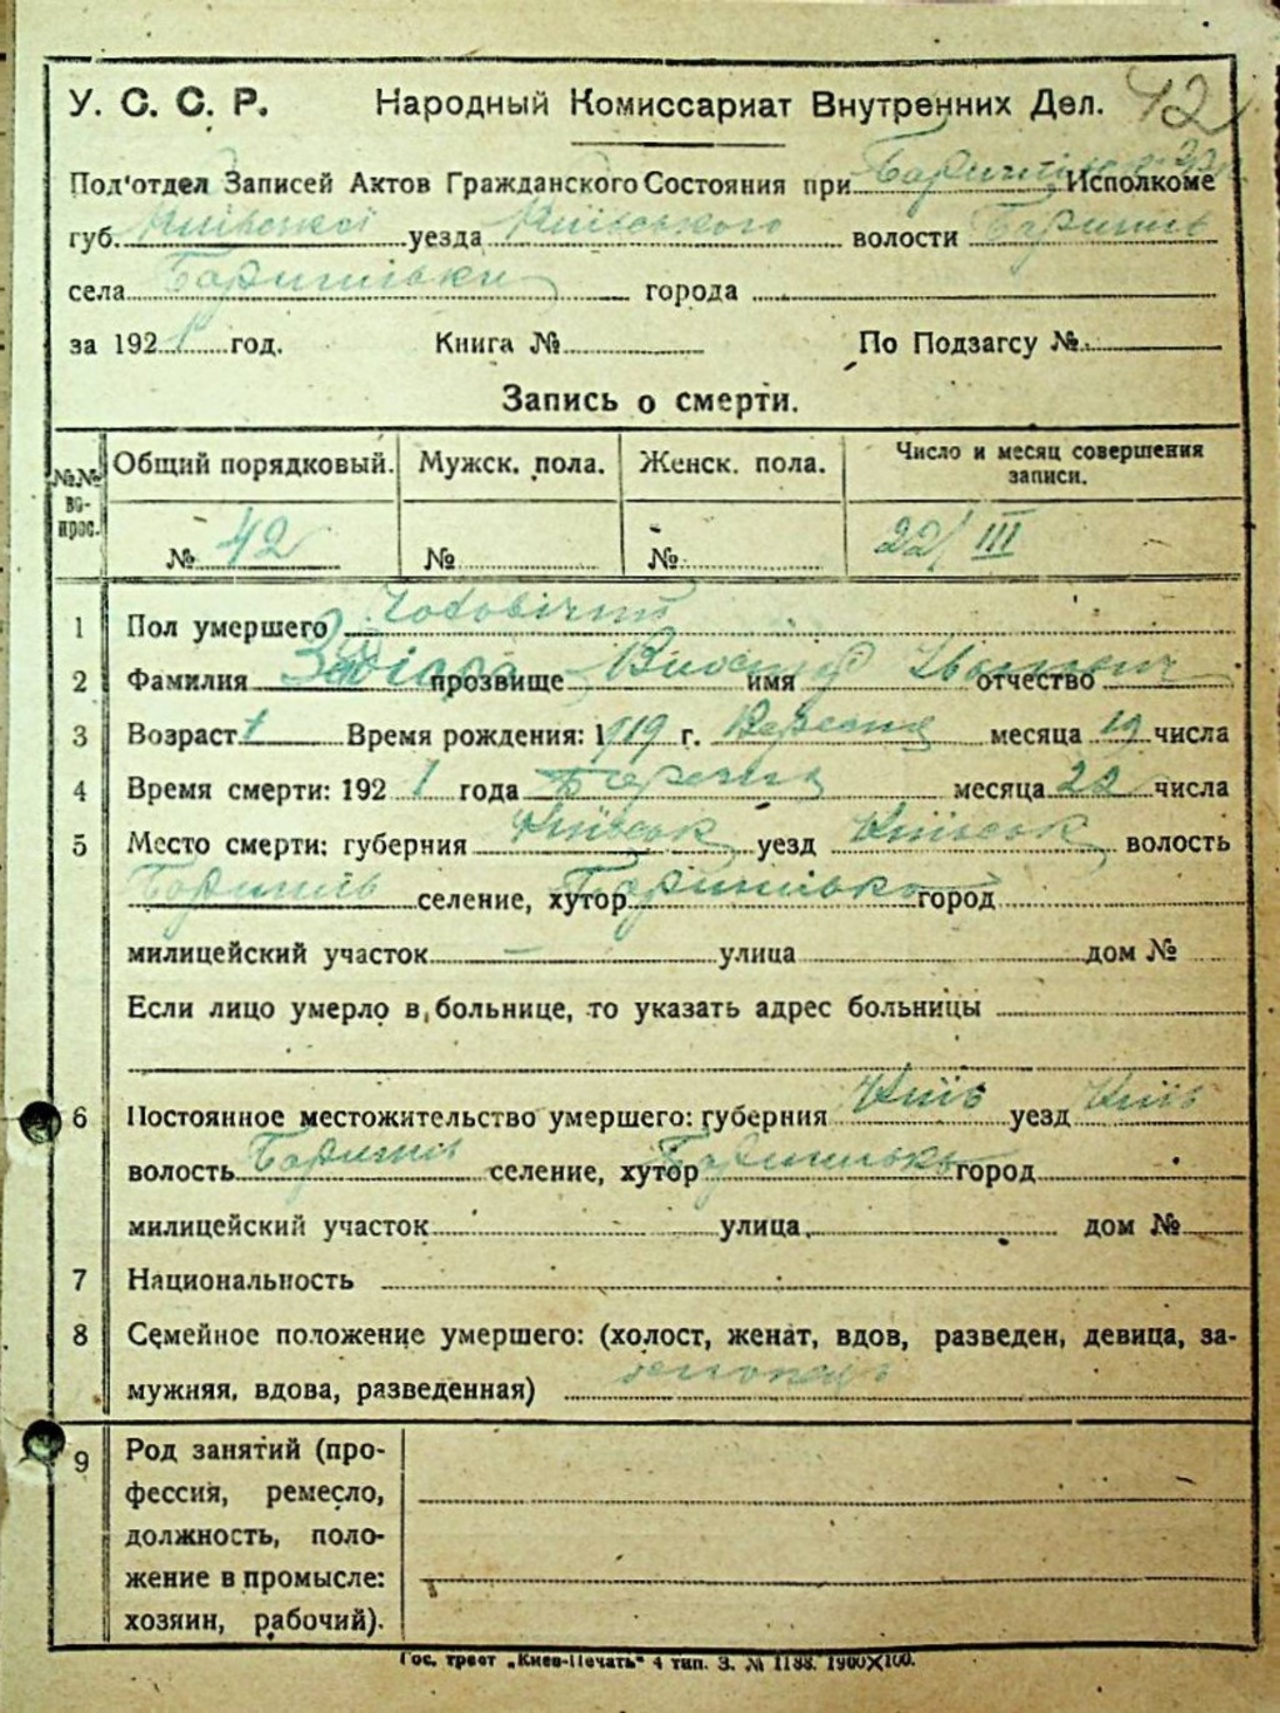 У. С. С. Р. Народный Комиссариат Внутренних Дел. 42
Под'отдел Записей Актов Гражданского Состояния при Исполкоме
губ. Київської уезда Київського волости Баришпіль
села города
за 1921 год. Книга № По Подзагсу №
Запись о смерти.
№№ вопрос. Общий порядковый. Мужск. пола. Женск. пола. Число и месяц совершения записи.
№ 42 № № 22/III
1 Пол умершего Чоловічий
2 Фамилия прозвище имя отчество Іванович
3 Возраст 1 Время рождения: 1919 г. Вересня месяца 19 числа
4 Время смерти: 1921 года Березня месяца 22 числа
5 Место смерти: губерния Київськ уезд Київськ волость
селение, хутор город
милицейский участок — улица дом №
Если лицо умерло в больнице, то указать адрес больницы
6 Постоянное местожительство умершего: губерния Київ уезд Київ
волость селение, хутор город
милицейский участок улица дом №
7 Национальность
8 Семейное положение умершего: (холост, женат, вдов, разведен, девица, за-
мужняя, вдова, разведенная)
9 Род занятий (про-
фессия, ремесло,
должность, поло-
жение в промысле:
хозяин, рабочий).
Гос. трест „Киев-Печать“ 4 тип. З. № 1188. 1900X100.